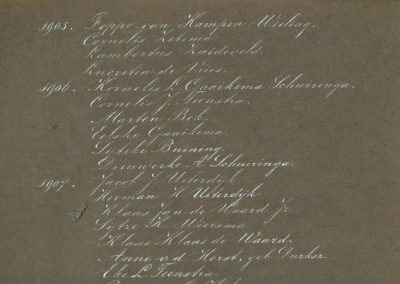 1905. Foppo van Kampen Wieling.
Cornelis Zetsma
Lambertus Zuideveld.
Lucretia de Vries.
1906. Kornelis L. Gaaikema Schuiringa.
Cornelis J. Teenstra.
Marten Bok.
Eelske Gaaikema.
Sijtske Buining.
Dieuwerke A. Schuiringa.
1907. Jacob J. Uiterdijk
Herman H. Uiterdijk
Klaas Jan de Waard Jz.
Sijtze K. Wiersma
Klaas Klaas de Waard.
Anne v.d. Horst, geb Durksz.
Eke L. Teenstra